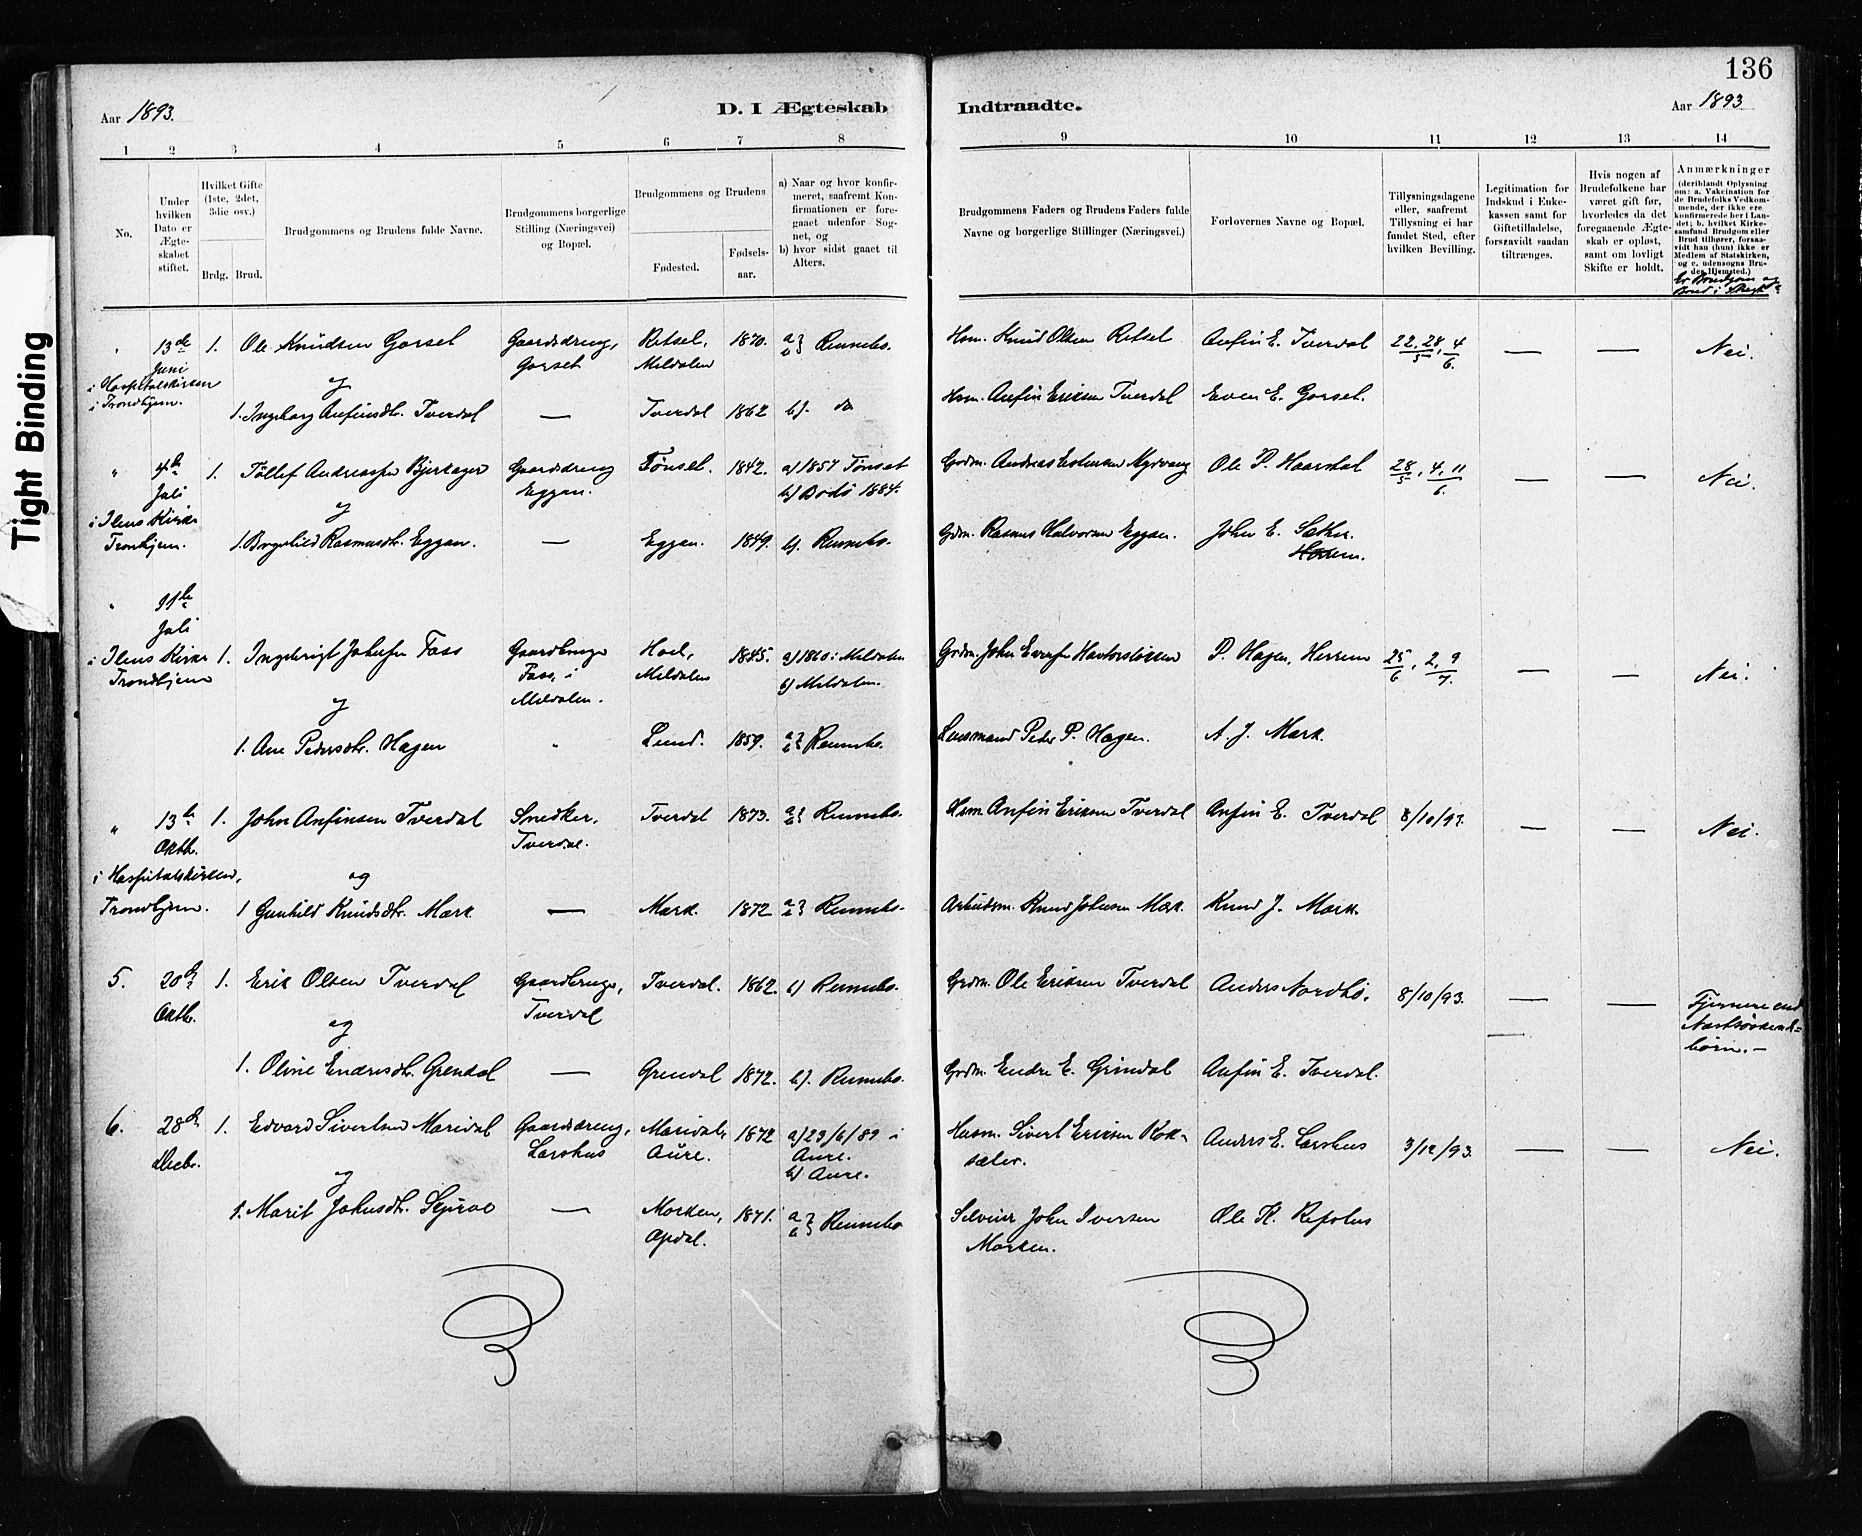 136
Aar 1893.
D. I Ægteskab Indtraadte.
Aar 1893
1 2 3 4 5 6 7 8 9 10 11 12 13 14
No.
Under
hvilken
Dato er
Ægte-
skabet
stiftet.
Hvilket Gifte
(1ste, 2det,
3die osv.)
Brdg. Brud.
Brudgommens og Brudens fulde Navne.
Brudgommens borgerlige
Stilling (Næringsvei)
og Bopæl.
Brudgommens og Brudens
Fødested.
Fødsels-
aar.
a) Naar og hvor konfir-
meret, saafremt Kon-
firmationen er fore-
gaaet udenfor Sog-
net, og
b) hvor sidst gaaet til
Alters.
Brudgommens Faders og Brudens Faders fulde
Navne og borgerlige Stillinger (Næringsvei.)
Forlovernes Navne og Bopæl.
Tillysningsdagene
eller, saafremt
Tillysning ei har
fundet Sted, efter
hvilken Bevilling.
Legitimation for
Indskud i Enke-
kassen samt for
Giftetilladelse,
forsaavidt saadan
tiltrænges.
Hvis nogen af
Brudefolkene har
været gift før,
hvorledes da det
foregaaende Ægte-
skab er opløst,
samt om lovligt
Skifte er holdt.
Anmærkninger
(deriblandt Oplysning
om: a. Vakcination for
de Brudefolks Vedkom-
mende, der ikke ere
konfirmerede her i Lan-
det; b. hvilket Kirke-
samfund Brudgom eller
Brud tilhører, forsaa-
vidt han (hun) ikke er
Medlem af Statskirken,
og c. udensogns Bru-
des Hjemsted.)
Er Brudgom og
Brud i Slægt?
" 13de Juni 1. Ole Knudsen Gorset Gaardsdreng, Gorset Retsel, Meldalen 1870. a} b} Rennebo. Hsm. Knud Olsen Retsel Anfin E. Tverdal 22, 28/5, 4/6. — — Nei.
i Hospitalskirken
i Trondhjem.
og
1. Ingeborg Anfinsdtr. Tverdal — Tverdal 1862 b). do Hsm. Anfin Eriksen Tverdal Even E. Gorset.
" 4de Juli 1. Tollef Andreassen Bjerkager Gaardsdreng Eggan. Tønset. 1842. a) 1857 Tønset b) Bodø 1884. Grdm. Andreas Estensen Ole P. Haarstad 28/5, 4, 11/6. — — Nei.
i Ilens Kirke
Tronhjem.
og
1. Rasmusdtr. Eggan. — Eggan. 1849. b). Rennebo. Grdm. Rasmus Halvorsen Eggan. John E. Sæther.
" 11te Juli
i Ilens Kirke 1. Ingebrigt Johnsen Fass Gaardbruger Fass, i Meldalen. Hoel, Meldalen 1845. a) 1860 i Meldalen b) Meldalen. Grdm. John P. Hagen, Herrem 25/6, 2, 9/7. — — Nei.
Trondhjem
og
1. Ane Pedersdtr. Hagen " Lund. 1859. a} b} Rennebo. Lensmand Peder P. Hagen. A. J. Mærk.
" 13de Oktb. 1. John Anfinsen Tverdal Snedker, Tverdal. Tverdal 1873. a} b} Rennebo. Hsm. Anfin Eriksen Tverdal Anfin E. Tverdal 8/10/93. — — Nei.
i Hospitalskirken,
Trondhjem.
og
1 Gunhild Knudsdtr. Mærk. — Mærk. 1872 a} b} Rennebo. Arbeidsm. Knud Johnsen Mærk. Knud J. Mærk.
5. 20de Oktb. 1. Erik Olsen Tverdal Gaardbruger, Tverdal Tverdal. 1862. b) Rennebo. Grdm. Ole Eriksen Tverdal Anders Nordbø. 8/10/93. — — Fjernere end Næstsødskende-børn. —
og
1. Oline Endresdtr. Grendal — Grendal 1872. b). Rennebo. Grdm. Endre E. Grindal Anfin E. Tverdal.
6. 28de Decbr. 1. Edvard Sivertsen Maridal Gaardsdreng, Larshus Maridal, Aure. 1872 a) 23/6/89 i Aure. b) Aure. Husm. Sivert Eriksen Anders E. Larshus 3/12/93. — — Nei.
og
1. Marit Johnsdtr. — Morken, Opdal. 1871. a} b} Rennebo Selveier John Iversen Morken. Ole K. Refshus
Tight Binding